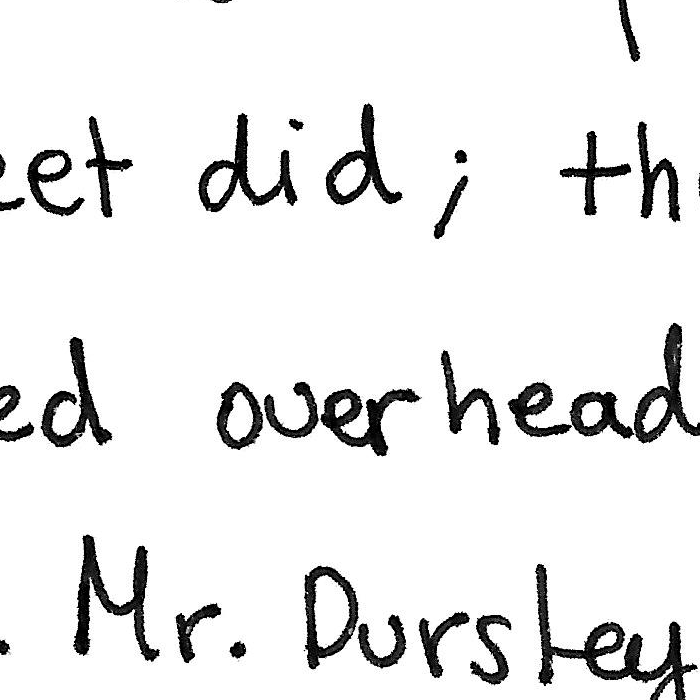 eet did; th
ed overhead
. Mr. Dursley